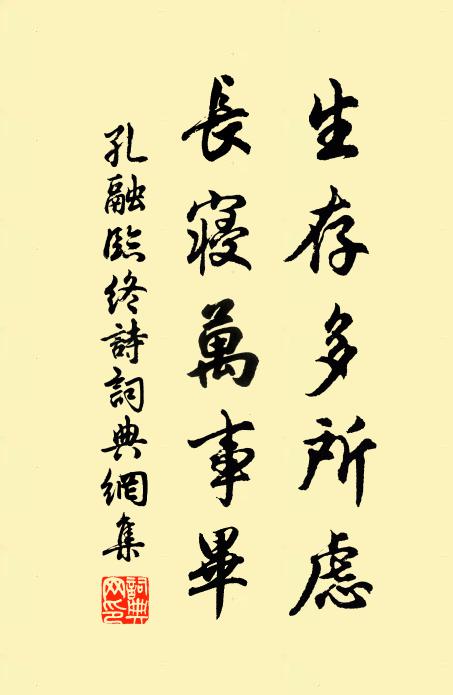 生存多所慮
長寢萬事畢
孔融臨終詩詞典網集
詞典網印